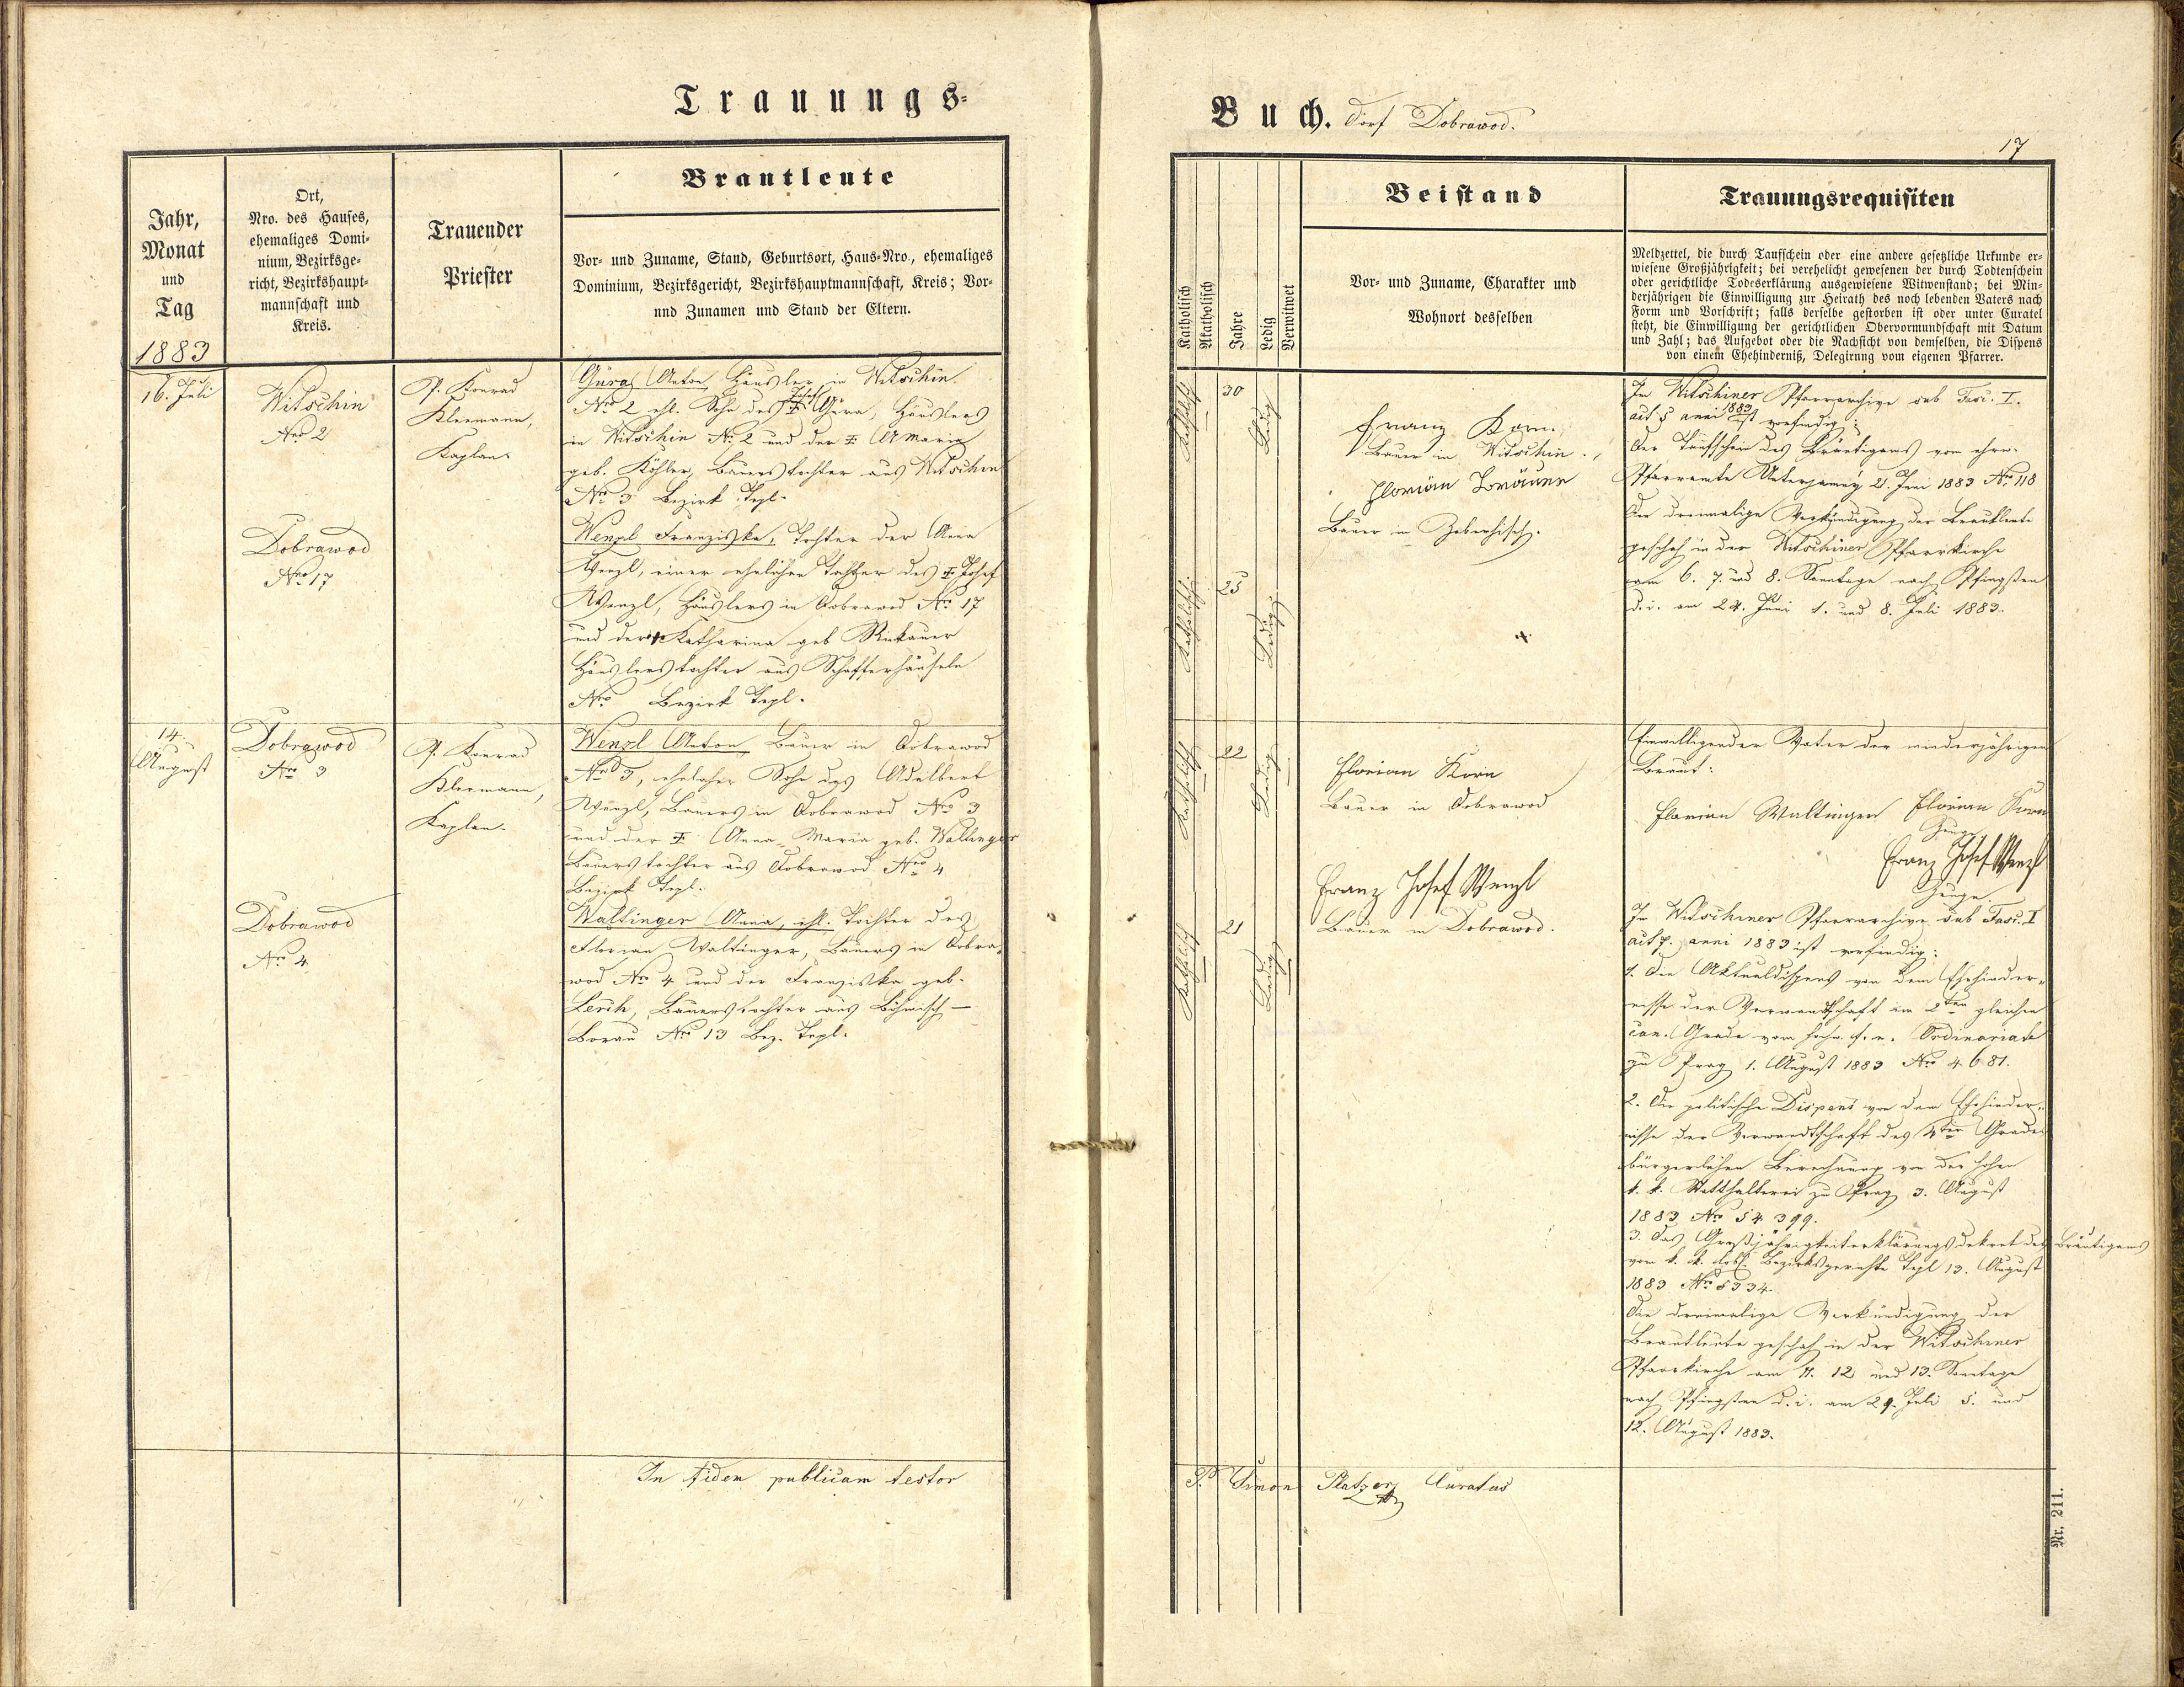 Trauungs-
Jahr,
Monat
und
Tag
1883
Ort,
Nro. des Hauses,
ehemaliges Domi-
nium, Bezirksge-
richt, Bezirkshaupt-
mannschaft und
Kreis.
Trauender
Priester
Brautleute
Vor- und Zuname, Stand, Geburtsort, Haus-Nro., ehemaliges
Dominium, Bezirksgericht, Bezirkshauptmannschaft, Kreis; Vor-
und Zunamen und Stand der Eltern.
16. Juli
Witschin
Nro 2
P. Konrad
Klermann,
Kaplan.
Anton, Häusler in Witschin
Nro 2 ehl. Sohn des Josef Häuslers
in Witschin Nro 2 und der A. Maria
geb. Köhler, Bauerstochter aus Witschin
Nro 3 Bezirk Tepl.
Dobrawod
Nro 17
Wenzl Franziska, Tochter der Anna
Wenzl, einer ehelichen Tochter des Josef
Wenzl, Häuslers in Dobrawod Nro 17
und der Katharina geb.
Häuslerstochter aus Schafferhäuseln
Nro Bezirk Tepl.
14.
August
Dobrawod
Nro 3
P. Konrad
Klermann,
Kaplan.
Wenzl Anton, Bauer in Dobrawod
Nro 3, ehelicher Sohn des Adalbert
Wenzl, Bauers in Dobrawod Nro 3
und der Anna Maria geb. Waltinger
Bauerstochter aus Dobrawod Nro 4
Bezirk Tepl.
Dobrawod
Nro 4
Waltinger Anna, ehl. Tochter des
Florian Waltinger, Bauers in Dobra-
wod Nro 4 und der Franziska geb.
Lerch, Bauerstochter aus Böhmisch-
Borau Nro 13 Bez. Tepl.
In fidem publicam testor
Buch. Dorf Dobrawod.
17
Katholisch
Akatholisch
Jahre
Ledig
Verwitwet
Beistand
Vor- und Zuname, Charakter und
Wohnort desselben
Trauungsrequisiten
Meldzettel, die durch Taufschein oder eine andere gesetzliche Urkunde er-
wiesene Großjährigkeit; bei verehelicht gewesenen der durch Todtenschein
oder gerichtliche Todeserklärung ausgewiesene Witwenstand; bei Min-
derjährigen die Einwilligung zur Heirath des noch lebenden Vaters nach
Form und Vorschrift; falls derselbe gestorben ist oder unter Curatel
steht, die Einwilligung der gerichtlichen Obervormundschaft mit Datum
und Zahl; das Aufgebot oder die Nachsicht von demselben, die Dispens
von einem Ehehinderniß, Delegirung vom eigenen Pfarrer.
Katholisch
30
Ledig
Franz Korn
Bauer in Witschin.
Florian Bräuer
Bauer in
In Witschiner Pfarrarchive sub Fasc. I.
act 5 anni 1883 ist vorfindig:
Der Taufschein des Bräutigams vom ehrw.
Pfarramte Unterjamny 21. Juni 1883 Nro 118
Die dreimalige Verkündigung der Brautleute
geschah in der Witschiner Pfarrkirche
am 6. 7. und 8. Sonntage nach Pfingsten
d. i. am 24. Juni 1. und 8. Juli 1883.
Katholisch
25
Ledig
Katholisch
22
Ledig
Florian Korn
Bauer in Dobrawod
Franz Josef Wenzl
Bauer in Dobrawod.
Einwilligender Vater der minderjährigen
Braut:
Florian Waltinger Florian Korn
Zeuge
Franz Josef Wenzl
Zeuge
Katholisch
21
Ledig
In Witschiner Pfarrarchive sub Fasc. I
act 7. anni 1883 ist vorfindig:
1. Die Aktualdispens von dem Ehehinder-
nisse der Verwandtschaft im 2ten gleichen
can. Grade vom hochw. f. e. Ordinariate
zu Prag 1. August 1883 Nro 4681.
2. Die politische Dispens von dem Ehehinder-
nisse der Verwandtschaft des 4ten Grades
bürgerlicher Berechnung von der hohen
k. k. Statthalterei zu Prag 3. August
1883 Nro 54399.
3. Das Großjährigkeitserklärungsdekret des Bräutigams
vom k. k. löbl. Bezirksgerichte Tepl 13. August
1883 Nro 5334.
Die dreimalige Verkündigung der
Brautleute geschah in der Witschiner
Pfarrkirche am 11. 12 und 13. Sonntage
nach Pfingsten d. i. am 29. Juli 5. und
12. August 1883.
P. Simon Platzer Curatus
Nr. 211.